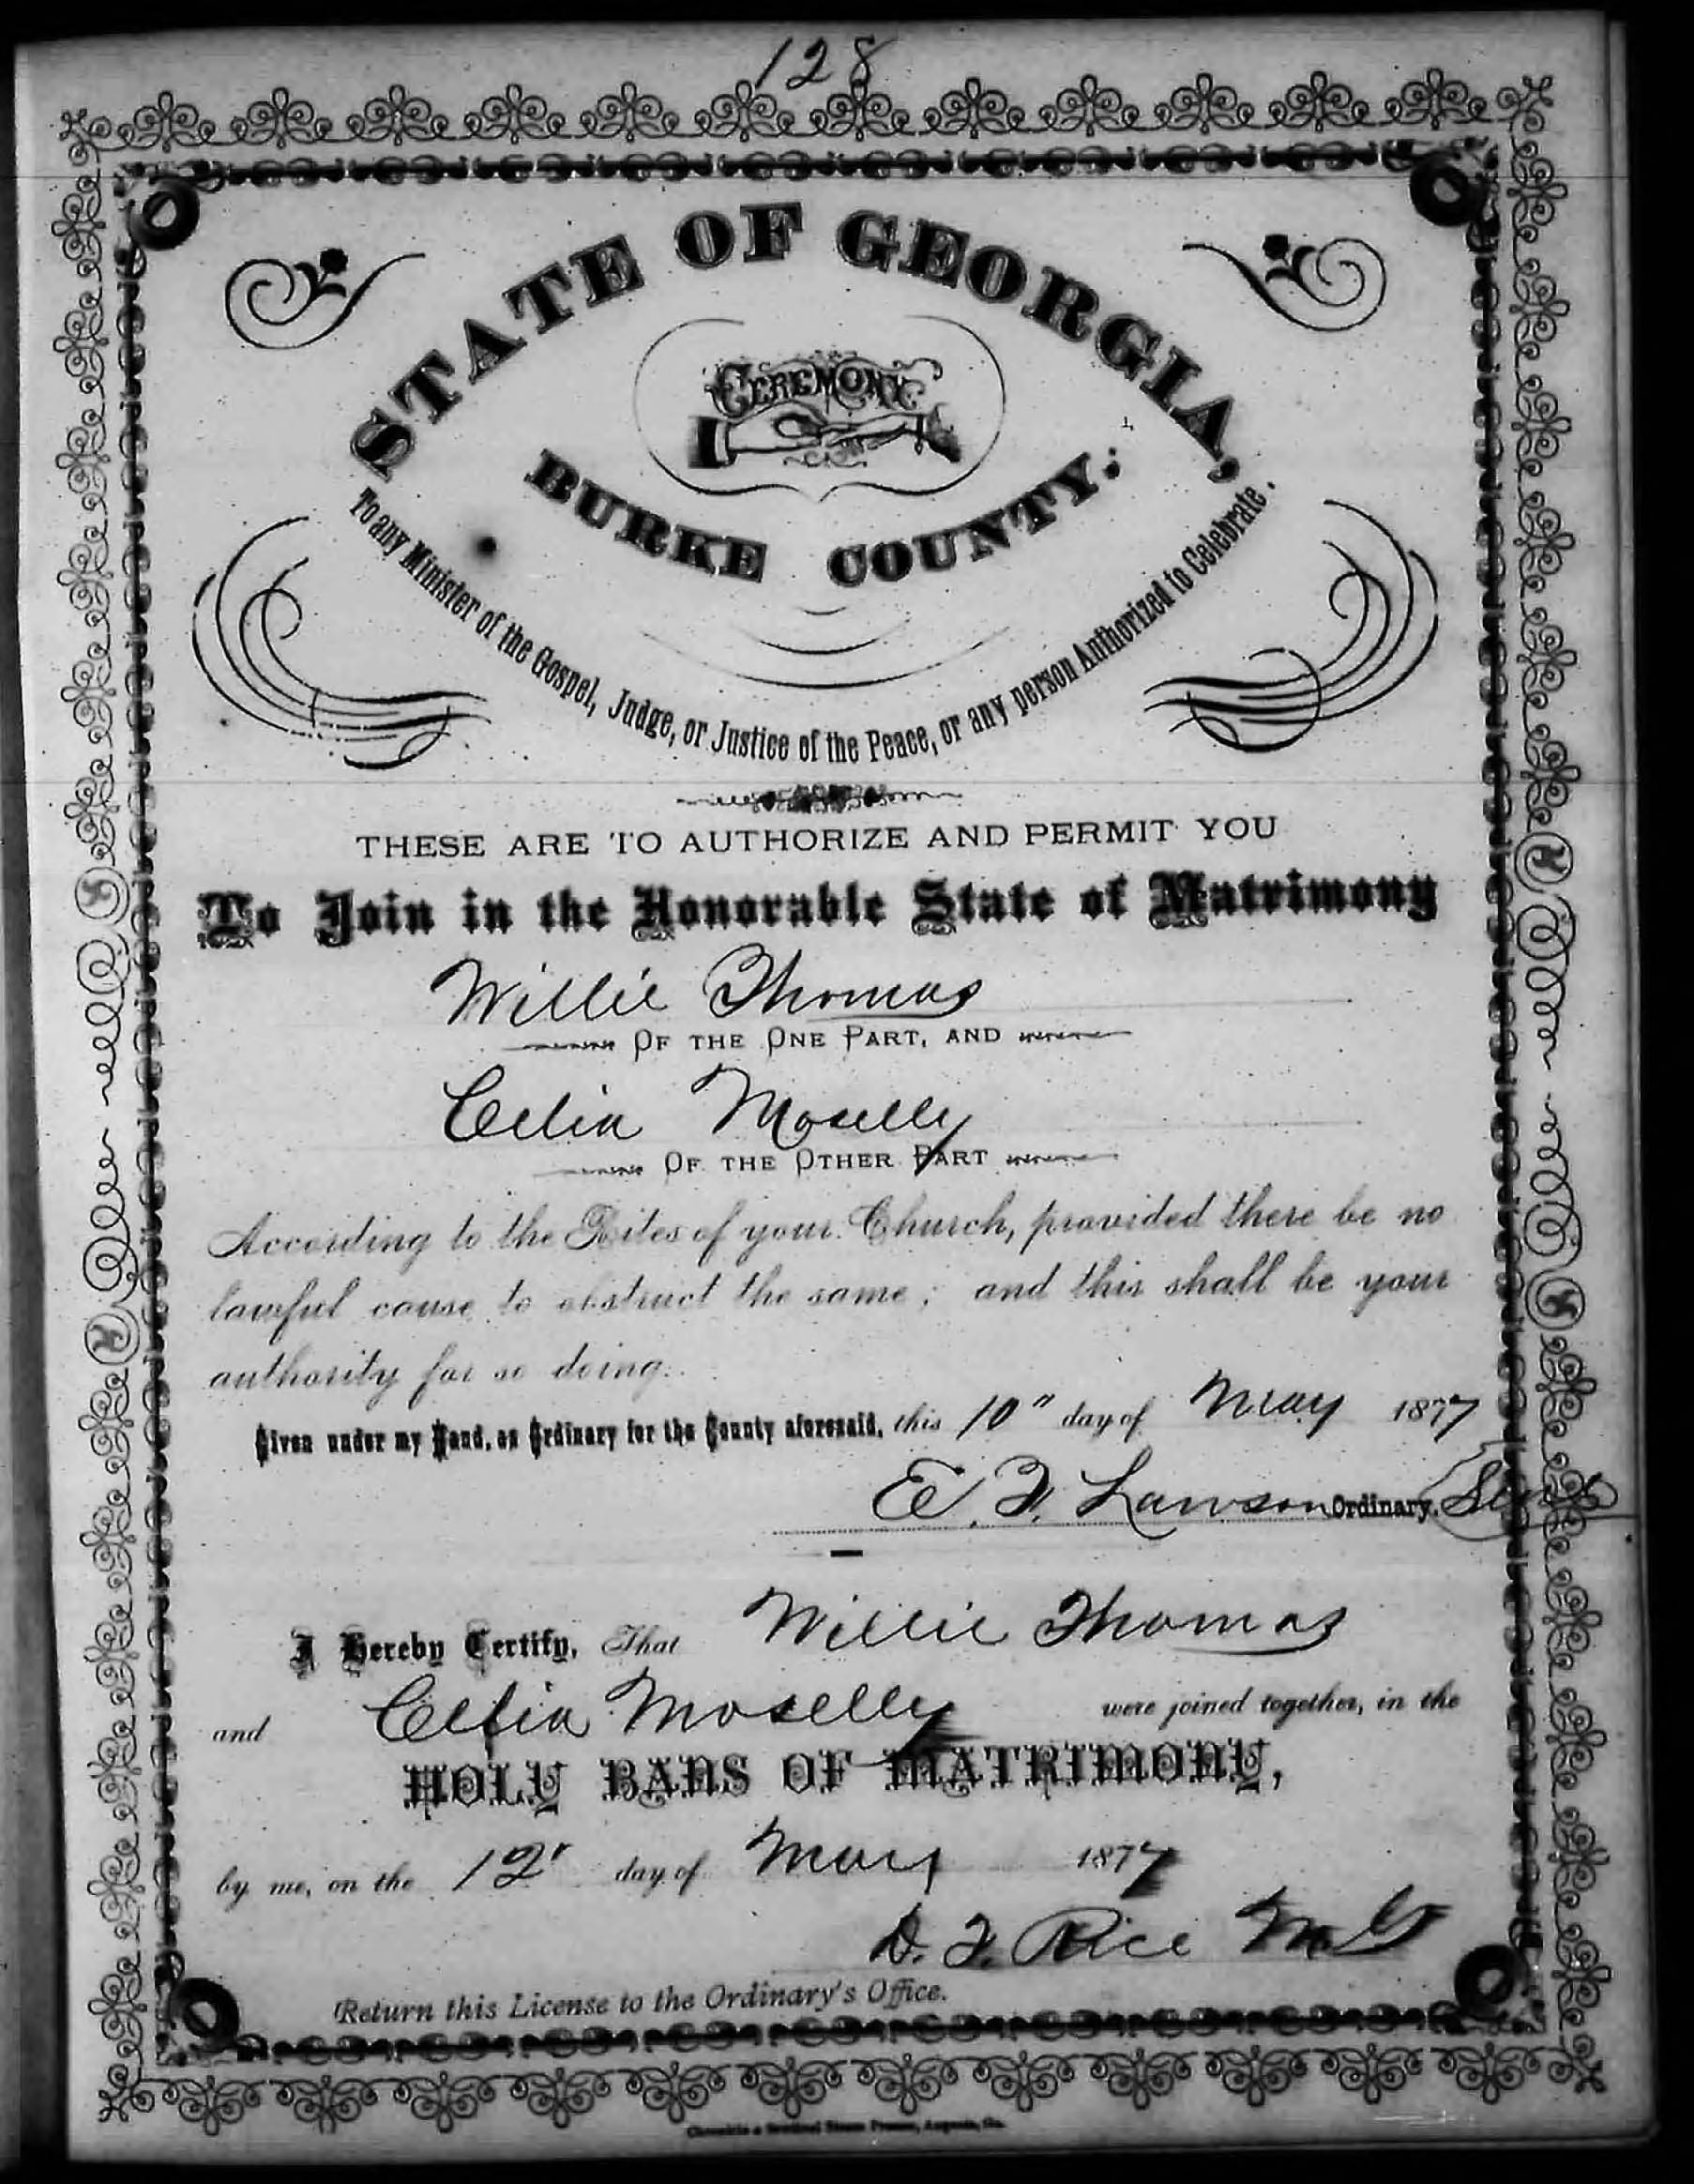 128
STATE OF GEORGIA,
CEREMONY
BURKE COUNTY:
To any Minister of the Gospel, Judge, or Justice of the Peace, or any person Authorized to Celebrate.
THESE ARE TO AUTHORIZE AND PERMIT YOU
To Join in the Honorable State of Matrimony
Willie Thomas
OF THE ONE PART, AND
Celia Moselly
OF THE OTHER PART
According to the Rites of your Church, provided there be no
lawful cause to obstruct the same; and this shall be your
authority for so doing.
Given under my Hand, as Ordinary for the County aforesaid, this 10" day of May 1877
E. F. Lawson Ordinary.
I Hereby Certify, That Willie Thomas
and Celia Moselly were joined together, in the
HOLY BANS OF MATRIMONY,
by me, on the 12" day of May 1877
D. F. Rice M G
Return this License to the Ordinary's Office.
Chronicle & Sentinel Steam Presses, Augusta, Ga.